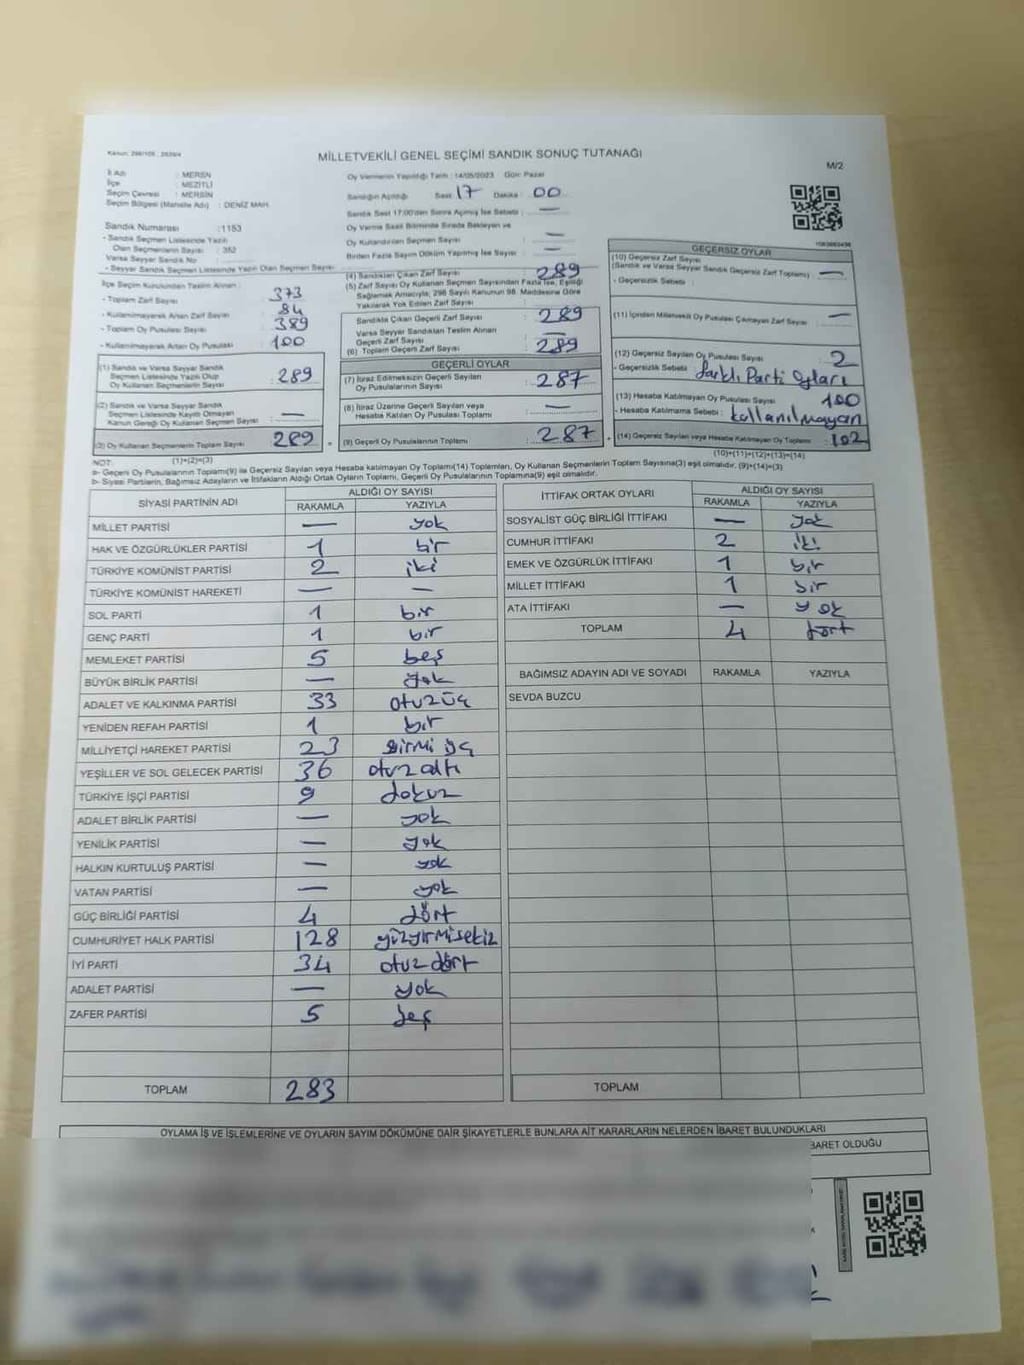 Kanun: 298/105 , 2839/4
MİLLETVEKİLİ GENEL SEÇİMİ SANDIK SONUÇ TUTANAĞI
M/2
İl Adı : MERSİN
İlçe : MEZİTLİ
Seçim Çevresi : MERSİN
Seçim Bölgesi (Mahalle Adı) : DENİZ MAH.
Sandık Numarası : 1153
- Sandık Seçmen Listesinde Yazılı
Olan Seçmenlerin Sayısı : 352
Varsa Seyyar Sandık No :
- Seyyar Sandık Seçmen Listesinde Yazılı Olan Seçmen Sayısı :
İlçe Seçim Kurulundan Teslim Alınan :
- Toplam Zarf Sayısı : 373
- Kullanılmayarak Artan Zarf Sayısı : 84
- Toplam Oy Pusulası Sayısı : 389
- Kullanılmayarak Artan Oy Pusulası : 100
(1) Sandık ve Varsa Seyyar Sandık
Seçmen Listesinde Yazılı Olup
Oy Kullanan Seçmenlerin Sayısı : 289
(2) Sandık ve Varsa Seyyar Sandık
Seçmen Listesinde Kayıtlı Olmayan
Kanun Gereği Oy Kullanan Seçmen Sayısı : —
(3) Oy Kullanan Seçmenlerin Toplam Sayısı : 289
(1)+(2)=(3)
Oy Vermenin Yapıldığı Tarih : 14/05/2023 Gün: Pazar
Sandığın Açıldığı Saat 17 Dakika : 00
Sandık Saat 17:00'den Sonra Açılmış İse Sebebi : —
Oy Verme Saati Bitiminde Sırada Bekleyen ve
Oy Kullandırılan Seçmen Sayısı : —
Birden Fazla Sayım Döküm Yapılmış İse Sayısı : —
(4) Sandıktan Çıkan Zarf Sayısı : 289
(5) Zarf Sayısı Oy Kullanan Seçmen Sayısından Fazla İse, Eşitliği
Sağlamak Amacıyla, 298 Sayılı Kanunun 98. Maddesine Göre
Yakılarak Yok Edilen Zarf Sayısı :
Sandıkta Çıkan Geçerli Zarf Sayısı : 289
Varsa Seyyar Sandıktan Teslim Alınan
Geçerli Zarf Sayısı : —
(6) Toplam Geçerli Zarf Sayısı : 289
GEÇERLİ OYLAR
(7) İtiraz Edilmeksizin Geçerli Sayılan
Oy Pusulalarının Sayısı : 287
(8) İtiraz Üzerine Geçerli Sayılan veya
Hesaba Katılan Oy Pusulası Toplamı : —
(9) Geçerli Oy Pusulalarının Toplamı : 287
GEÇERSİZ OYLAR
(10) Geçersiz Zarf Sayısı
(Sandık ve Varsa Seyyar Sandık Geçersiz Zarf Toplamı) : —
- Geçersizlik Sebebi :
(11) İçinden Milletvekili Oy Pusulası Çıkmayan Zarf Sayısı : —
(12) Geçersiz Sayılan Oy Pusulası Sayısı : 2
- Geçersizlik Sebebi : farklı Parti oyları
(13) Hesaba Katılmayan Oy Pusulası Sayısı : 100
- Hesaba Katılmama Sebebi : kullanılmayan
(14) Geçersiz Sayılan veya Hesaba Katılmayan Oy Toplamı : 102
(10)+(11)+(12)+(13)=(14)
NOT:
a- Geçerli Oy Pusulalarının Toplamı(9) ile Geçersiz Sayılan veya Hesaba katılmayan Oy Toplamı(14) Toplamları, Oy Kullanan Seçmenlerin Toplam Sayısına(3) eşit olmalıdır. (9)+(14)=(3)
b- Siyasi Partilerin, Bağımsız Adayların ve İttifakların Aldığı Ortak Oyların Toplamı, Geçerli Oy Pusulalarının Toplamına(9) eşit olmalıdır.
SİYASİ PARTİNİN ADI ALDIĞI OY SAYISI
RAKAMLA YAZIYLA
MİLLET PARTİSİ — yok
HAK VE ÖZGÜRLÜKLER PARTİSİ 1 bir
TÜRKİYE KOMÜNİST PARTİSİ 2 iki
TÜRKİYE KOMÜNİST HAREKETİ — —
SOL PARTİ 1 bir
GENÇ PARTİ 1 bir
MEMLEKET PARTİSİ 5 beş
BÜYÜK BİRLİK PARTİSİ — yok
ADALET VE KALKINMA PARTİSİ 33 otuzüç
YENİDEN REFAH PARTİSİ 1 bir
MİLLİYETÇİ HAREKET PARTİSİ 23 yirmi üç
YEŞİLLER VE SOL GELECEK PARTİSİ 36 otuz altı
TÜRKİYE İŞÇİ PARTİSİ 9 dokuz
ADALET BİRLİK PARTİSİ — yok
YENİLİK PARTİSİ — yok
HALKIN KURTULUŞ PARTİSİ — yok
VATAN PARTİSİ — yok
GÜÇ BİRLİĞİ PARTİSİ 4 dört
CUMHURİYET HALK PARTİSİ 128 yüzyirmisekiz
İYİ PARTİ 34 otuz dört
ADALET PARTİSİ — yok
ZAFER PARTİSİ 5 beş
TOPLAM 283
İTTİFAK ORTAK OYLARI ALDIĞI OY SAYISI
RAKAMLA YAZIYLA
SOSYALİST GÜÇ BİRLİĞİ İTTİFAKI — yok
CUMHUR İTTİFAKI 2 iki
EMEK VE ÖZGÜRLÜK İTTİFAKI 1 bir
MİLLET İTTİFAKI 1 bir
ATA İTTİFAKI — yok
TOPLAM 4 dört
BAĞIMSIZ ADAYIN ADI VE SOYADI RAKAMLA YAZIYLA
SEVDA BUZCU
TOPLAM
OYLAMA İŞ VE İŞLEMLERİNE VE OYLARIN SAYIM DÖKÜMÜNE DAİR ŞİKAYETLERLE BUNLARA AİT KARARLARIN NELERDEN İBARET BULUNDUKLARI
BARET OLDUĞU